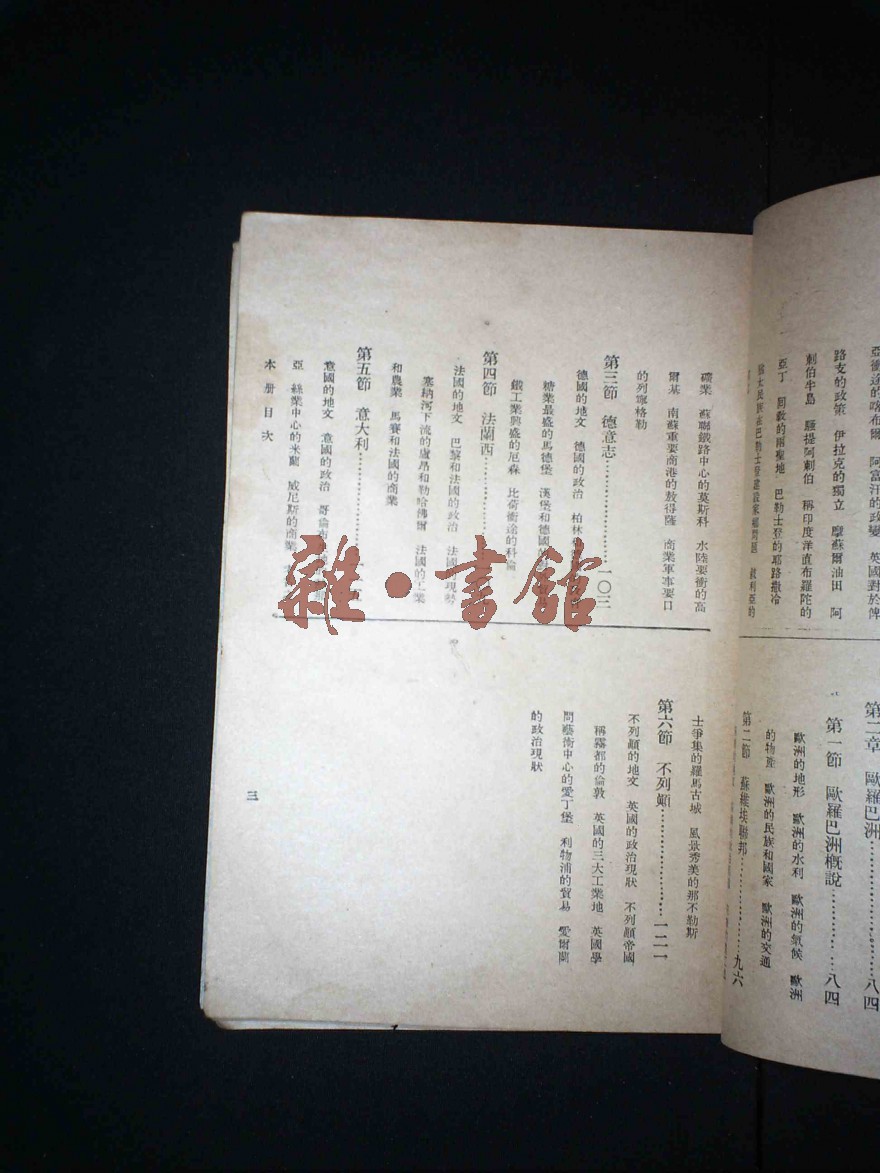 亞衝途的喀布爾 阿富汗的政變 英國對於俾
路支的政策 伊拉克的獨立 摩蘇爾油田 阿
剌伯半島 腦提阿剌伯 稱印度洋直布羅陀的
亞丁 回敎的兩聖地 巴勒士登的耶路撒冷
猶太民族在巴勒士登建設家鄉問題 敍利亞的
第二章 歐羅巴洲…………八四
第一節 歐羅巴洲槪說…………八四
歐洲的地形 歐洲的水利 歐洲的氣候 歐洲
的物產 歐洲的民族和國家 歐洲的交通
第二節 蘇維埃聯邦…………九六
礦業 蘇聯鐵路中心的莫斯科 水陸要衝的高
爾基 南蘇重要商港的敖得薩 商業軍事要口
的列寧格勒
第三節 德意志…………一〇三
德國的地文 德國的政治 柏林
糖業最盛的馬德堡 漢堡和德國的
鐵工業興盛的厄森 比荷衝途的科倫
第四節 法蘭西
法國的地文 巴黎和法國的政治 法國的現勢
塞納河下流的盧昂和勒哈佛爾 法國的工業
和農業 馬賽和法國的商業
第五節 意大利
意國的地文 意國的政治 哥倫布
亞 絲業中心的米蘭 威尼斯的商業
士爭集的羅馬古城 風景秀美的那不勒斯
第六節 不列顛…………一二一
不列顛的地文 英國的政治現狀 不列顛帝國
稱霧都的倫敦 英國的三大工業地 英國學
問藝術中心的愛丁堡 利物浦的貿易 愛爾蘭
的政治現狀
本册目次
三
雜·書館